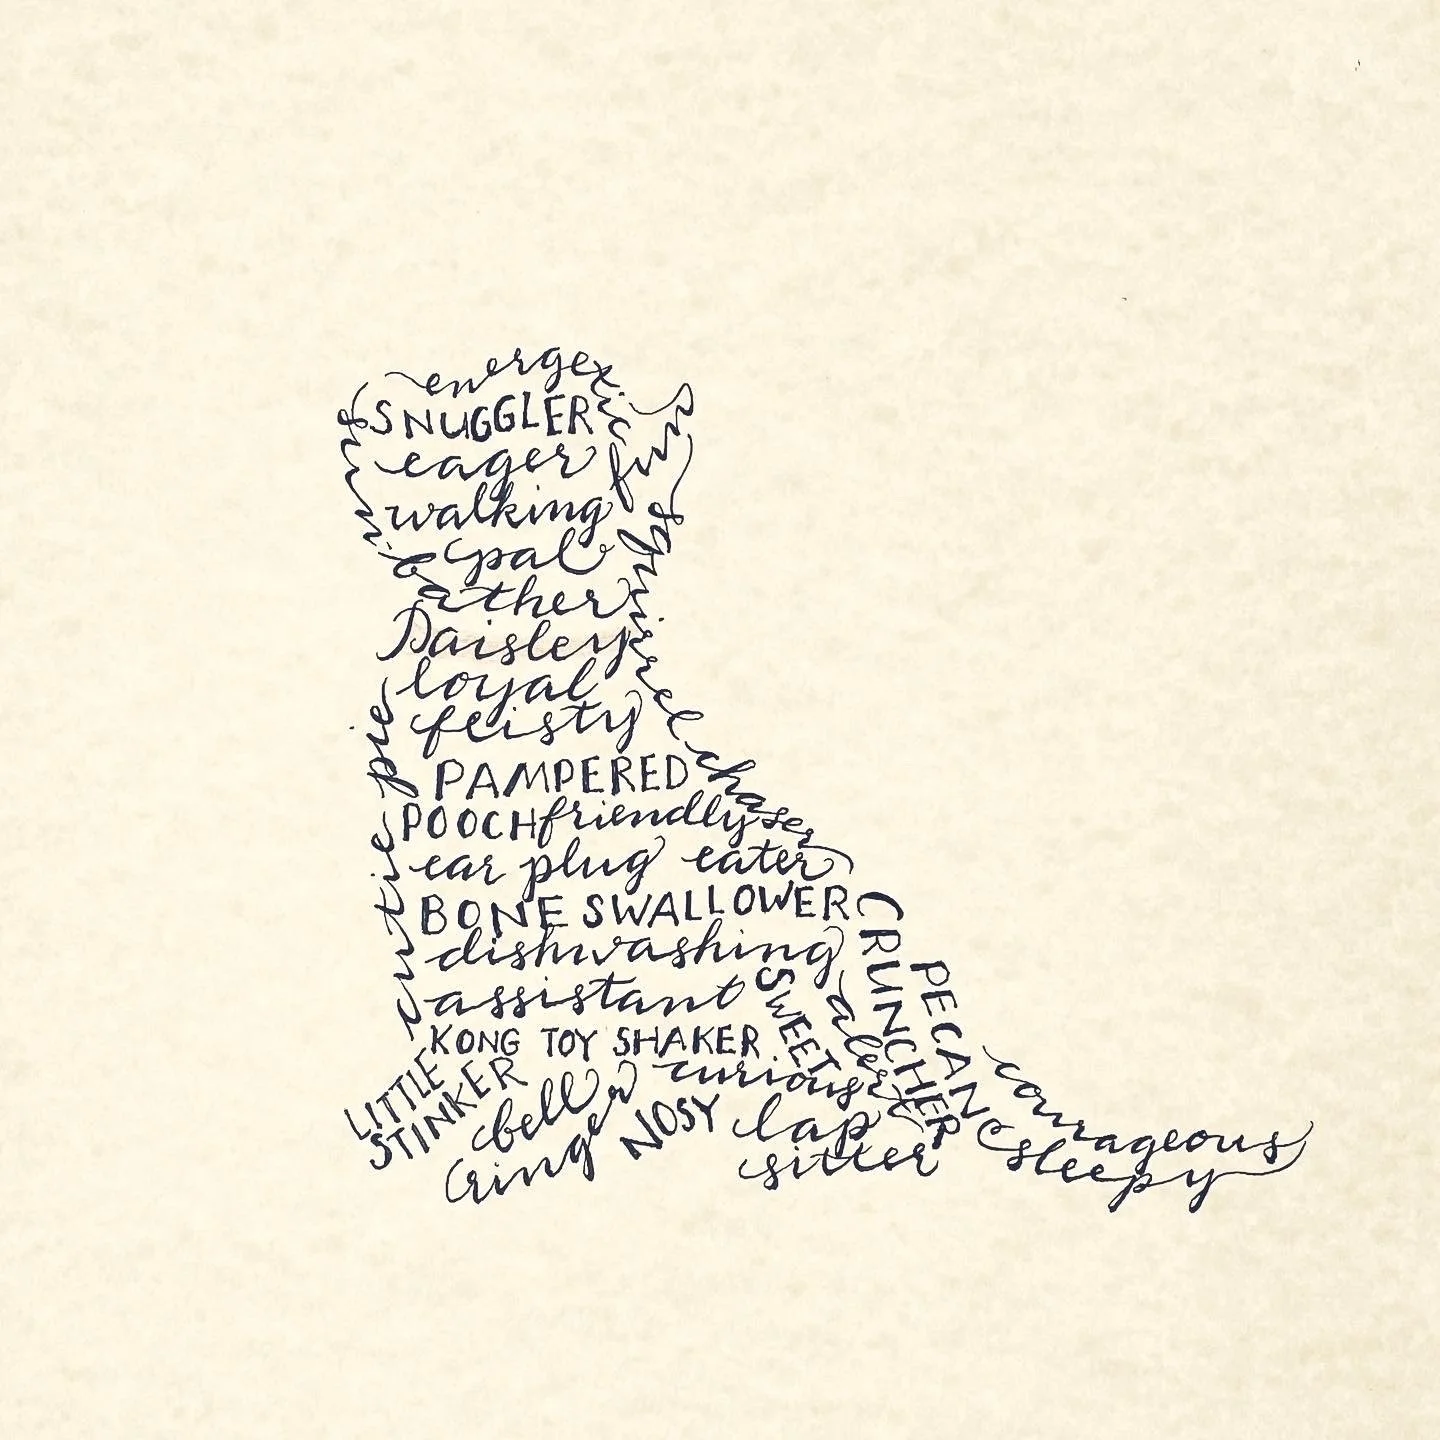 energetic
SNUGGLER
eager
fun
walking
pal
feminine
bather
Paisley
loyal
feisty
squirrel chaser
PAMPERED
POOCH friendly
ear plug eater
BONE SWALLOWER
dishwashing
assistant
cutie pie
KONG TOY SHAKER
SWEET
alert
PECAN
CRUNCHER
LITTLE
STINKER
bell
ringer
curious
NOSY
lap
sitter
courageous
sleepy